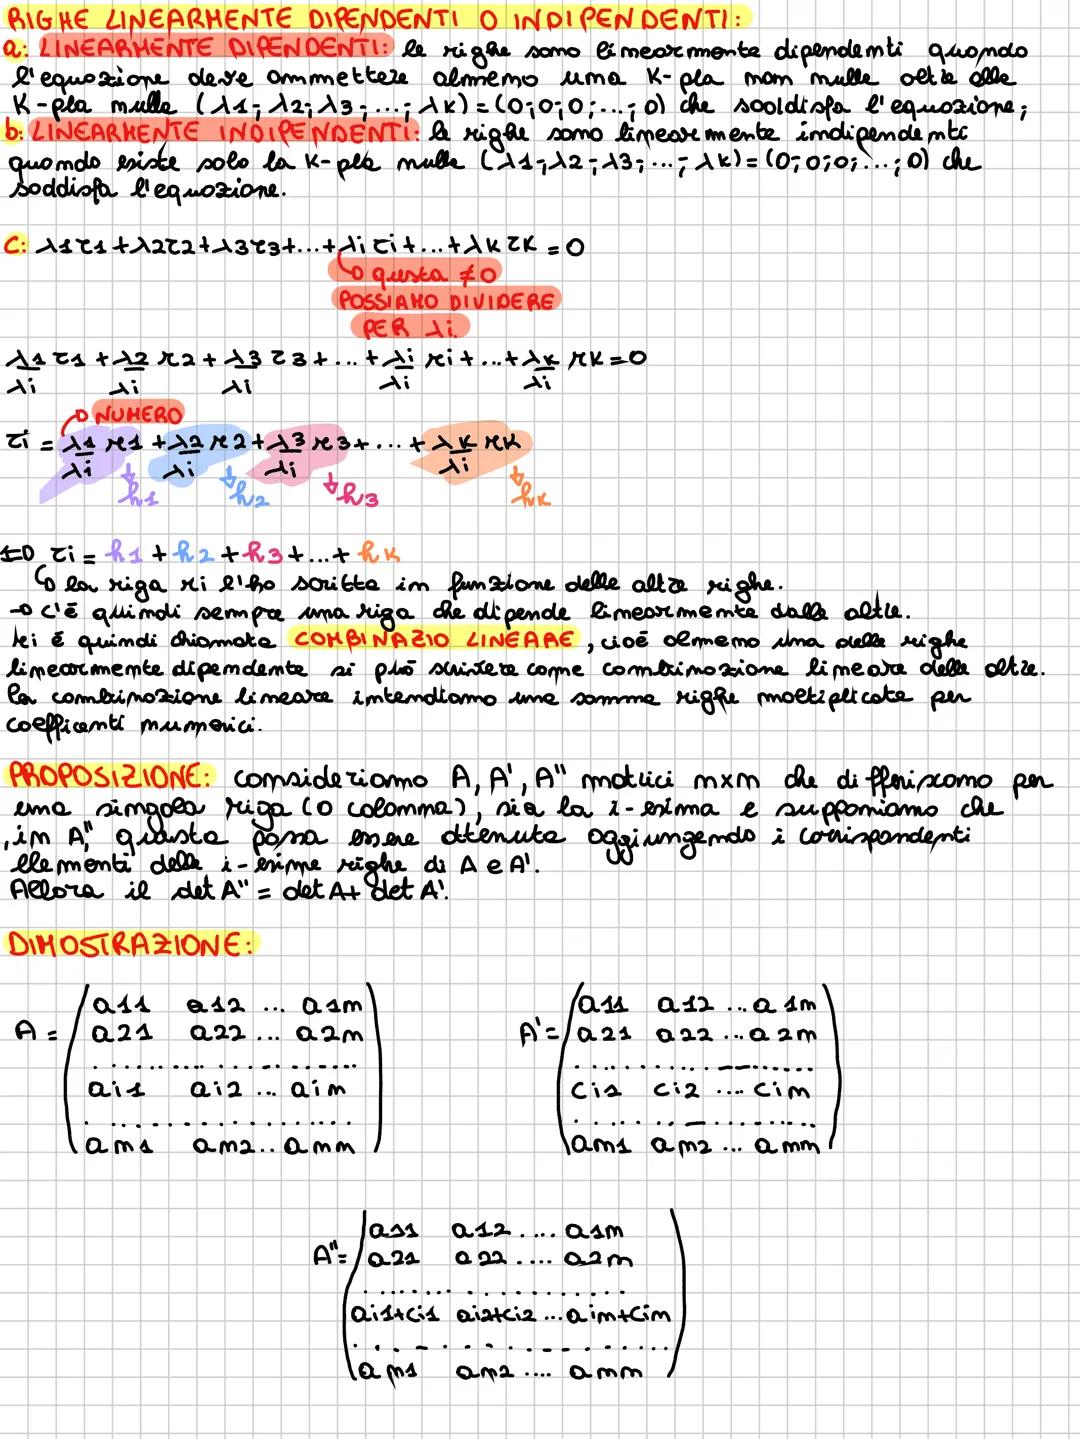 RIGHE LINEARMENTE DIPENDENTI O INDIPENDENTI:
a: LINEARMENTE DIPENDENTI: le righe sono linearmente dipendenti quando
l'equazione deve ammettere almeno una K-pla non nulla oltre alla
K-pla nulla (λ1; λ2; λ3; ...; λK) = (0; 0; 0; ...; 0) che soddisfa l'equazione;
b: LINEARMENTE INDIPENDENTI: le righe sono linearmente indipendenti
quando esiste solo la K-pla nulla (λ1; λ2; λ3; ...; λK) = (0; 0; 0; ...; 0) che
soddisfa l'equazione.
C: λ1r1 + λ2r2 + λ3r3 + ... + λi ri + ... + λK rK = 0
questa ≠0
POSSIAMO DIVIDERE
PER λi.
λ1/λi r1 + λ2/λi r2 + λ3/λi r3 + ... + λi/λi ri + ... + λK/λi rK = 0
NUMERO
ri = λ1/λi r1 + λ2/λi r2 + λ3/λi r3 + ... + λK/λi rK
h1 h2 h3 hK
ri = h1 + h2 + h3 + ... + hK
la riga ri l'ho scritta in funzione delle altre righe.
→ c'è quindi sempre una riga che dipende linearmente dalle altre.
ri è quindi chiamata COMBINAZIO LINEARE, cioè almeno una delle righe
linearmente dipendente si può scrivere come combinazione lineare delle altre.
la combinazione lineare intendiamo una somma righe moltiplicate per
coefficenti numerici.
PROPOSIZIONE: consideriamo A, A', A'' matrici nxn che differiscono per
una singola riga (o colonna), sia la i-esima e supponiamo che
, in A'', questa possa essere ottenuta aggiungendo i corrispondenti
elementi delle i-esime righe di A e A'.
Allora il det A'' = det A + det A'.
DIMOSTRAZIONE:
a11 a12 ... a1n a11 a12 ... a1n
A = a21 a22 ... a2n A' = a21 a22 ... a2n
.................... ....................
ai1 ai2 ... ain ci1 ci2 .... cin
.................... ....................
an1 an2 .. ann an1 an2 ... ann
a11 a12 .... a1n
A'' = a21 a22 .... a2n
....................
ai1+ci1 ai2+ci2 ... ain+cin
....................
an1 an2 .... ann